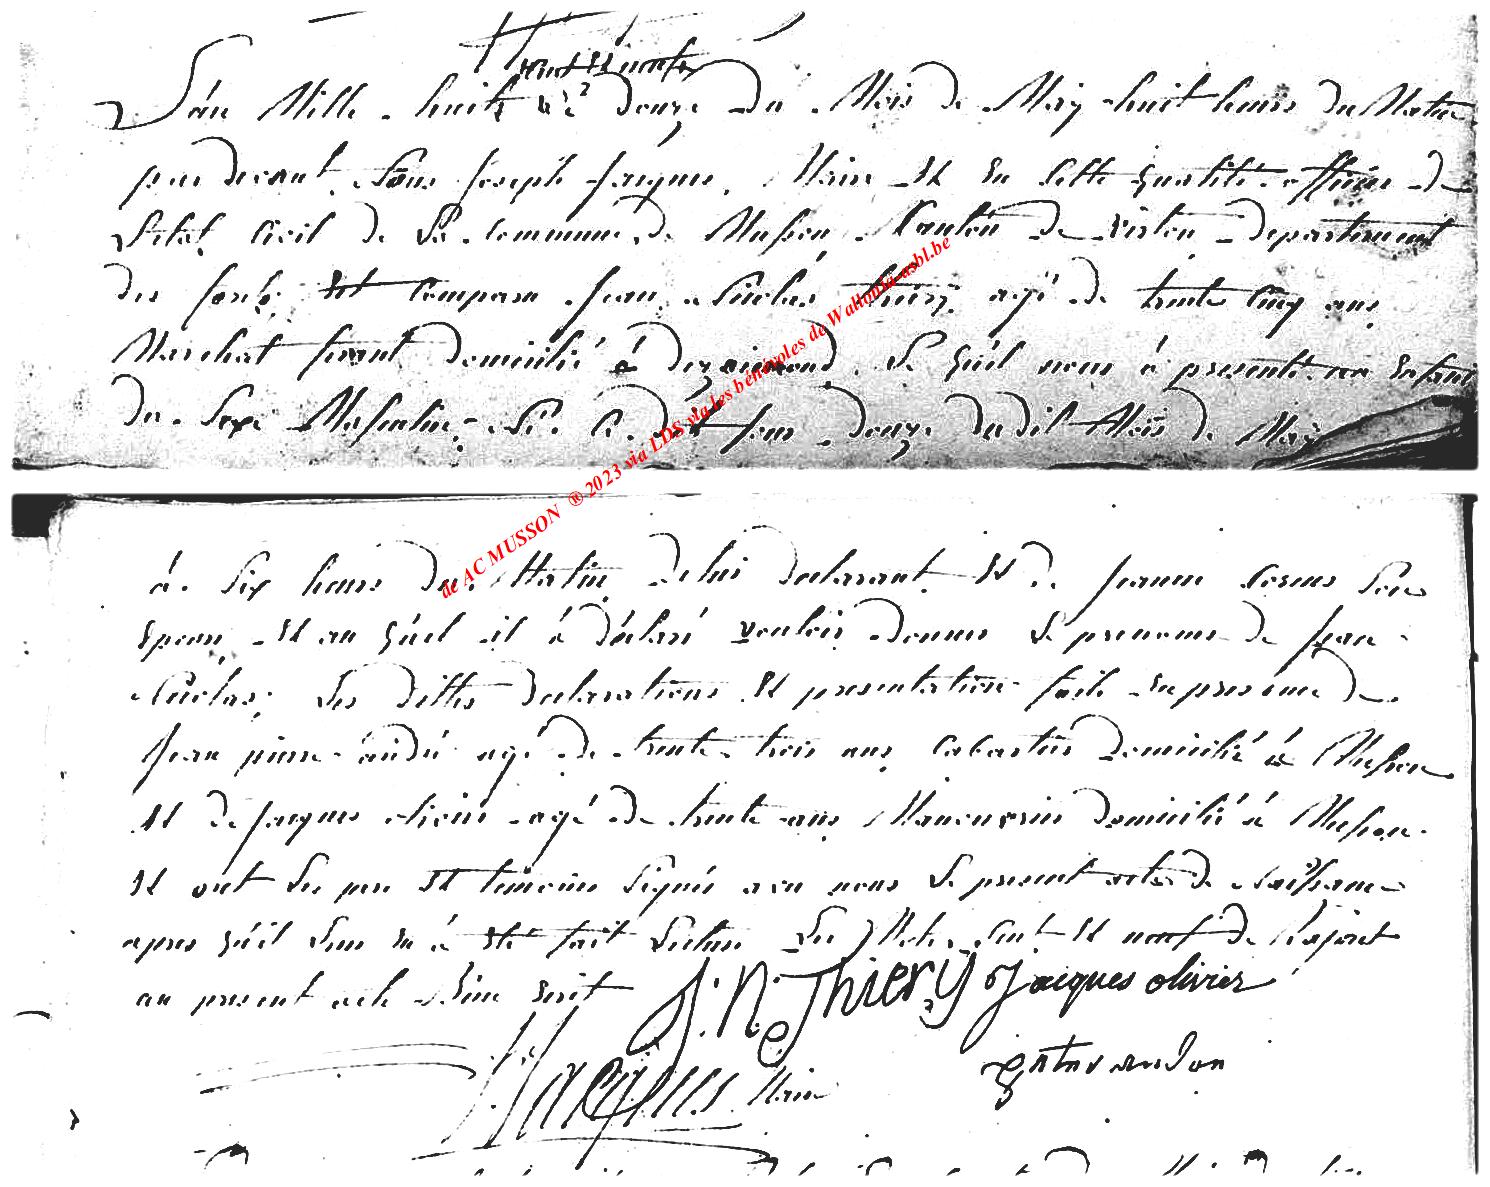 L'an Mille huit cent douze du Mois de May huit heures du Matin
par devant Nous Joseph Jacques, Maire Et En Cette qualité officier de
L'etat Civil de La Commune de Musson Canton de virton departement
des forets, Est Comparu Jean Nicolas thiery agé de trente Cinq ans
Marchat ferant domicilié à Le quel nous à presenté un Enfant
du Sexe Masculin Né Ce d'it jour douze dudit Mois de May
à Six heures du Matin de lui declarant Et de Jeanne Son
Epouse, Et au quel il à déclaré vouloir donner Le prenoms de Jean
Nicolas; Les dittes declarations Et presentation faite En presence de
Jean pierre agé de trente trois ans Cabartier domicilié à Musson
Et de Jacques olivier agé de trente ans Manouvrier domicilié à Musson
Et ont Les pere Et temoins Signés avec nous Le present acte de Naissance
apres qu'il Leur En à Eté fait Lecture Les Mots Cent Et neuf de Rajout
au present acte Bien Ecrit
J. N. Thiery Jacques olivier
Jacques Maire
de AC MUSSON ® 2023 via LDS via les bénévoles de Wallonia-asbl.be